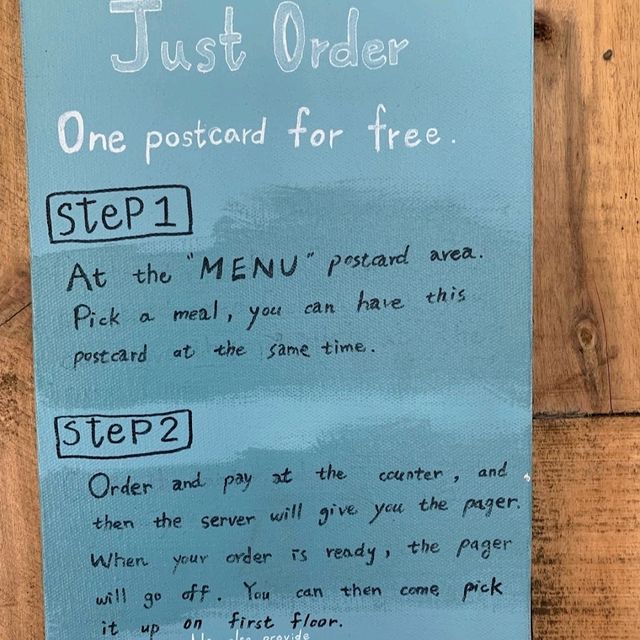 Just Order
One postcard for free.
SteP 1
At the "MENU" postcard area.
Pick a meal, you can have this
postcard at the same time.
SteP 2
Order and pay at the counter, and
then the server will give you the pager.
When your order is ready, the pager
will go off. You can then come pick
it up on first floor.
also provide